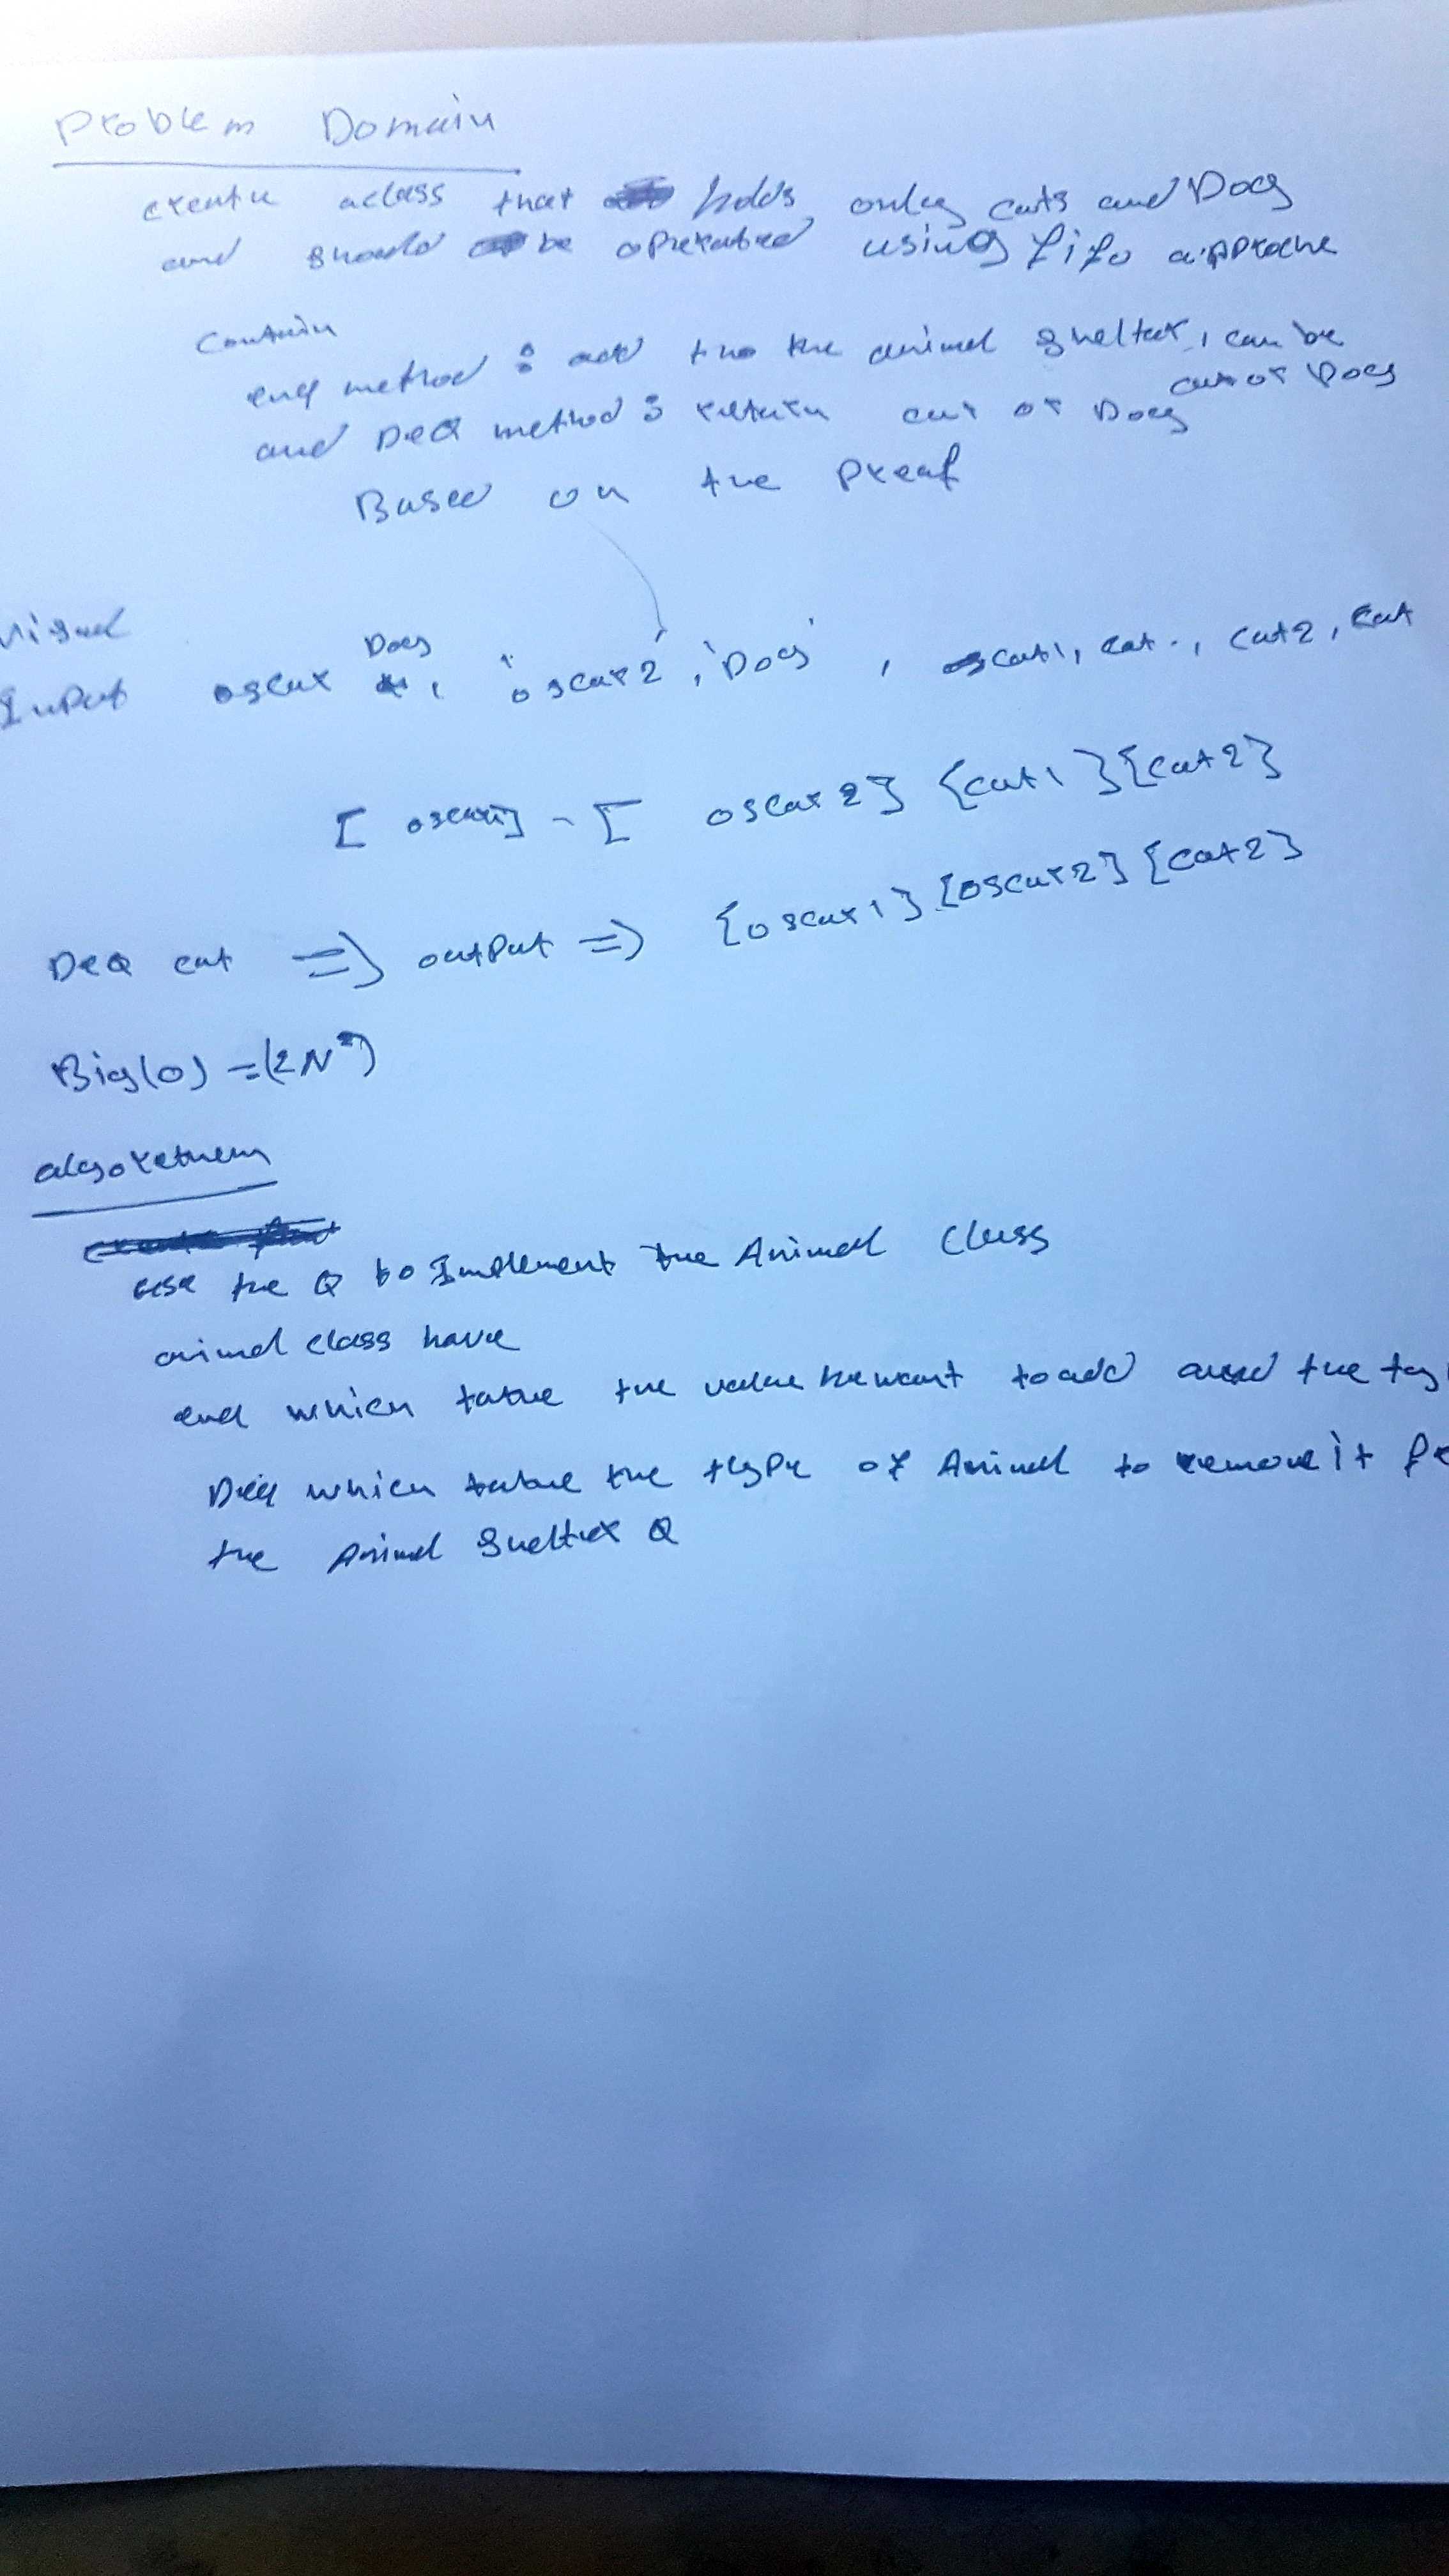 Problem Domain
create a class that holds only cats and Dogs
and should be oprerated using fifo approche
Contain
enq method : add to the animel shelter, can be
cat or Dogs
and DeQ method : return cat or Dog
Based on the preaf
Visual
Dog
Input oscar , 'oscar2', 'Dog' , cat1, cat , cat2, cat
[ oscar1] - [ oscar2} {cat1}{cat2}
DeQ cat => output => {oscar1}{oscar2}{cat2}
Big(O) = (2N²)
algorethem
use the Q to Implement the Animal Class
animel class have
enq which take the value we want to add and the ty
Deq which take the type of Animal to remove it f
the Animel Shelter Q